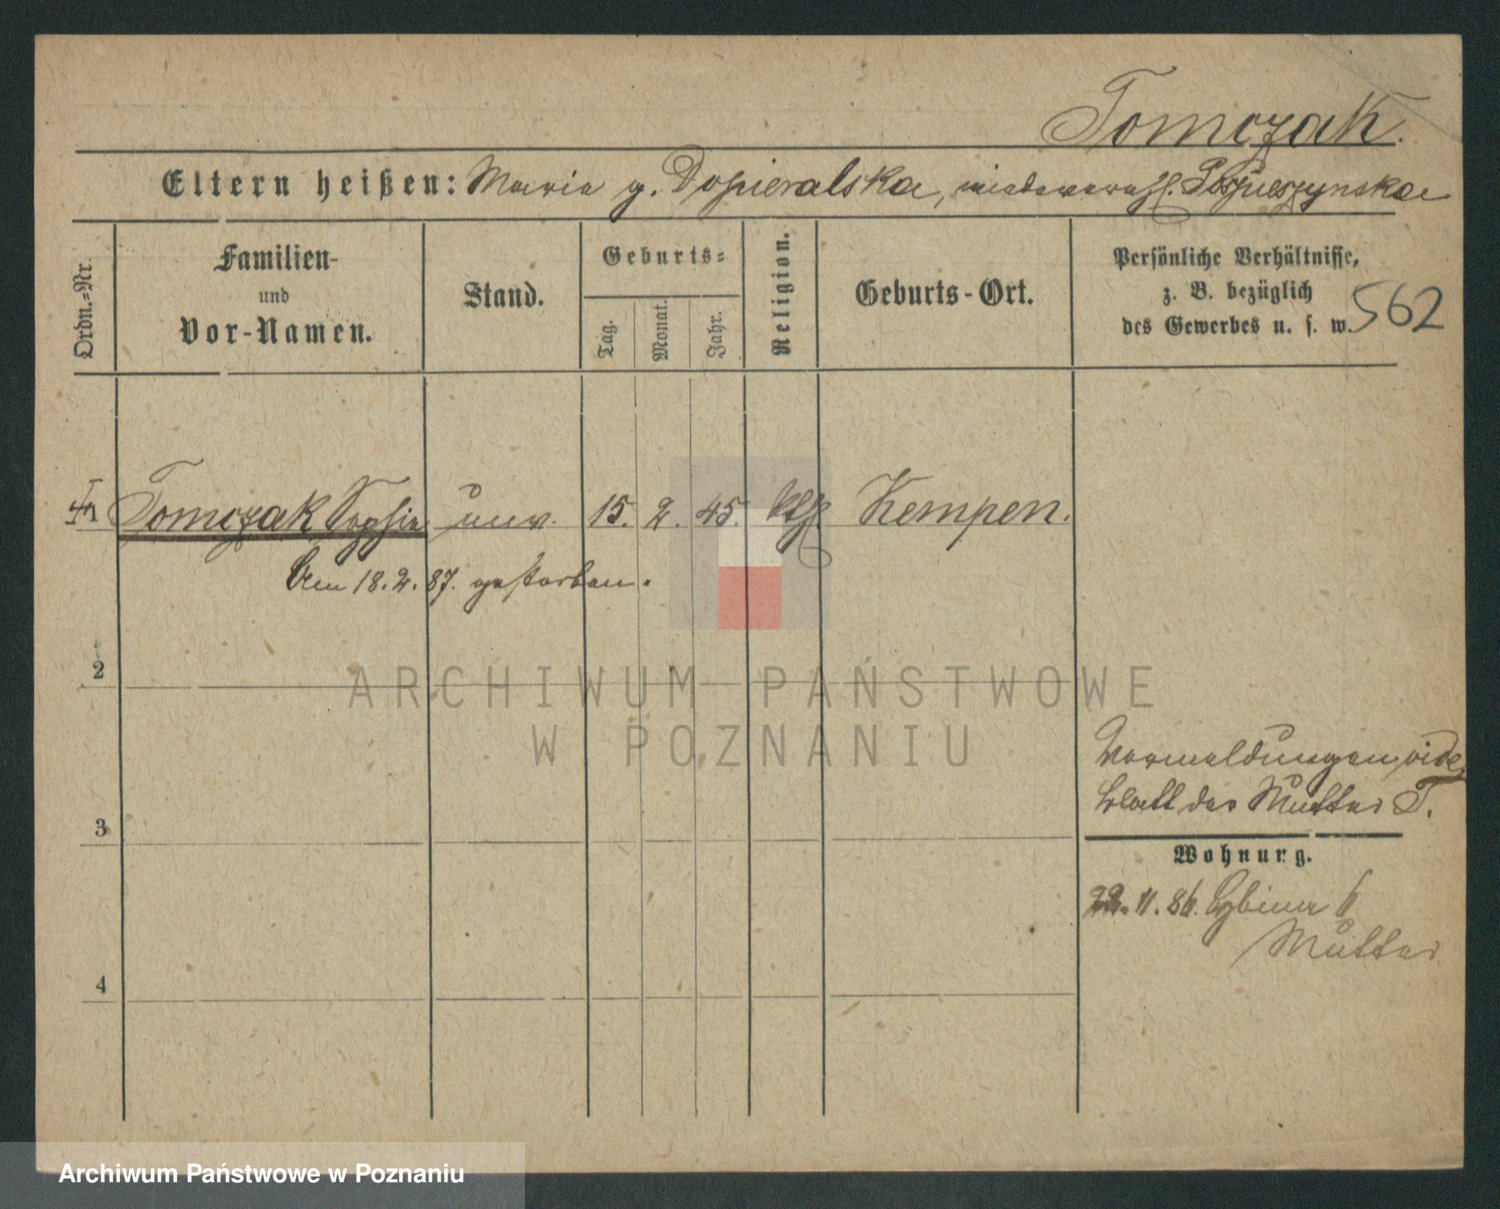 Tomczak.
Eltern heißen: Maria g. Dopieralska, wiederverehl.
Ordn.-Nr.
Familien-
und
Vor-Namen.
Stand.
Geburts-
Tag.
Monat.
Jahr.
Religion.
Geburts-Ort.
Persönliche Verhältnisse,
z. B. bezüglich
des Gewerbes u. s. w.
562
1 Tomczak Sophia unv. 15. 2. 45. kth. Kempen.
Am 18. 2. 87. gestorben.
2
3
4
Vormeldungen vide
Blatt der Mutter T.
Wohnung.
22. 11. 86. Cybina 6
Mutter
ARCHIWUM PAŃSTWOWE
W POZNANIU
Archiwum Państwowe w Poznaniu